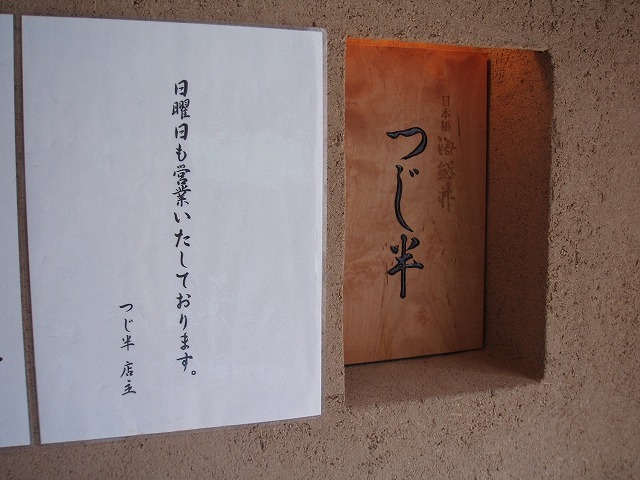 日曜日も営業いたしております。
つじ半 店主
日本橋 海鮮丼
つじ半